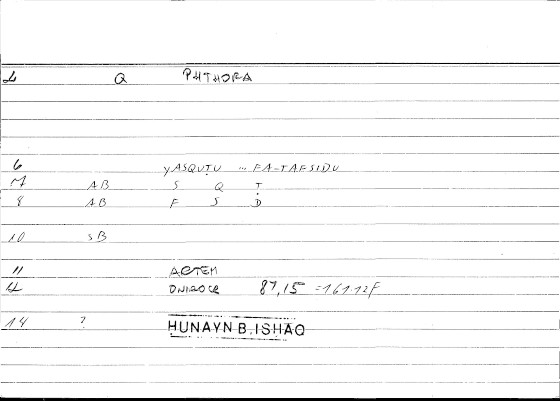 Q PHTHORA
6 YASQUṬU ... FA-TAFSIDU
AB S Q Ṭ
8 AB F S Ḍ
10 SB
11 ARTEM
ONIROCR 87,15 =161.12F
14 ? HUNAYN B. ISHAQ